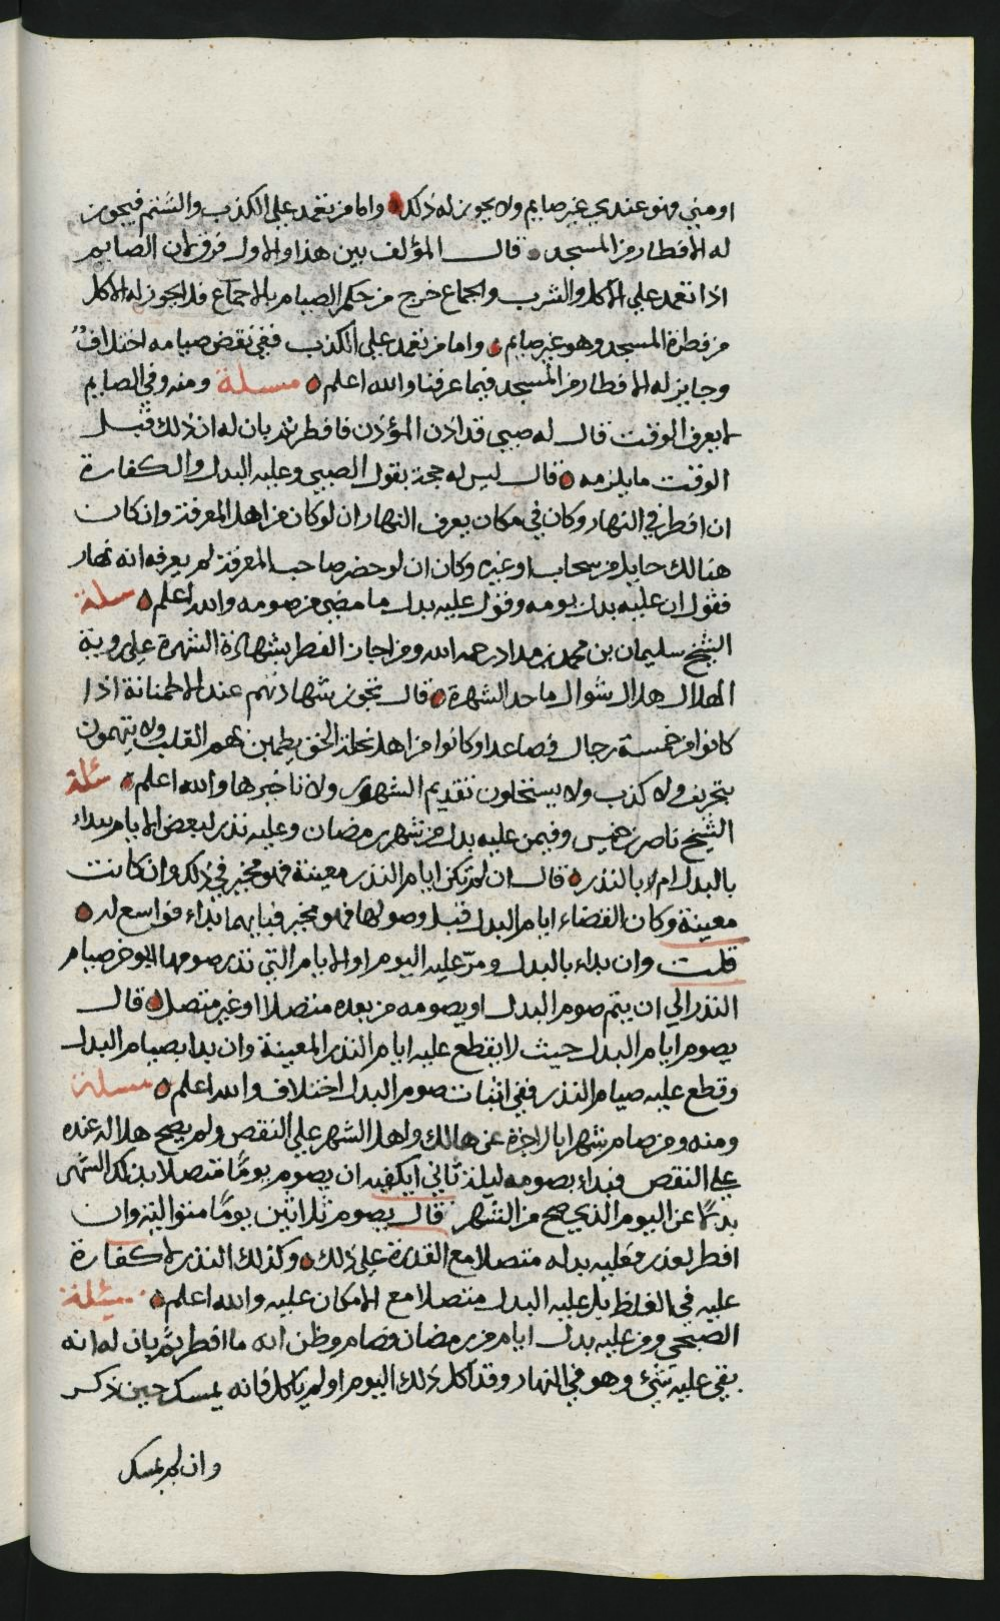 او مني فهو عندي غير صايم ولا يجوز له ذلك واما من تعمد على الكذب والشتم فيجوز
له الافطار من المسجد قال المؤلف بين هذا والاول فرق لان الصايم
اذا تعمد على الاكل والشرب والجماع خرج من حكم الصيام بالاجماع فلا يجوز له الاكل
من فطرة المسجد وهو غير صايم واما من تعمد على الكذب ففي نقض صيامه اختلافٌ
وجايز له الافطار من المسجد فيما عرفنا والله اعلم مسلة ومنه وفي الصايم
لا يعرف الوقت قال له صبي قد اذن المؤذن فافطر ثم بان له ان ذلك قبل
الوقت ما يلزمه قال ليس له حجة بقول الصبي وعليه البدل والكفارة
ان افطر في النهار وكان في مكان يعرف النهار ان لو كان من اهل المعرفة وان كان
هنالك حايل من سحاب او غيره وكان ان لو حضر صاحب المعرفة لم يعرفه انه نهار
فقول ان عليه بدل يومه وقول عليه بدل ما مضى من صومه والله اعلم مسلة
الشيخ سليمان بن محمد بن مداد رحمه الله ومن اجاز الفطر بشهادة الشهرة على روية
الهلال هلال شوال ما حد الشهرة قال تجوز شهادتهم عند الاطمنانة اذا
كانوا من خمسة رجال فصاعدا وكانوا من اهل نحلة الحق يطمين بهم القلب ولا يتهمون
بتحريف ولا كذب ولا يستحلون تقديم الشهور ولا تاخيرها والله اعلم مسئلة
الشيخ ناصر بن خميس وفيمن عليه بدل من شهر رمضان وعليه نذر لبعض الايام يبداء
بالبدل ام لا بالنذر قال ان لم تكن ايام النذر معينة فهو مخير في ذلك وان كانت
معينة وكان القضاء ايام البدل قبل وصولها فهو مخير فبايهما بداء فواسع له
قلت وان بداء بالبدل ومرّ عليه اليوم او الايام التي نذر صومها ايوخر صيام
النذر الى ان يتم صوم البدل او يصومه من بعده متصلا او غير متصل قال
يصوم ايام البدل حيث لا يقطع عليه ايام النذر المعينة وان بدا بصيام البدل
وقطع عليه صيام النذر ففي اثبات صوم البدل اختلاف والله اعلم مسلة
ومنه ومن صام شهرا بالاجرة عن هالك واهل الشهر على النقص ولم يصح هلاله عنده
على النقص فبداء بصومه ليلة ثاني ايكفيه ان يصوم يومًا متصلا بذلك الشهر
بدلًا عن اليوم الذي صح من الشهر قال يصوم ثلاثين يومًا متواليه وان
افطر لعذر فعليه بدله متصلا مع القدرة على ذلك وكذلك النذر لا كفارة
عليه في الغلظ بل عليه البدل متصلا مع الامكان عليه والله اعلم مسئلة
الصبحي ومن عليه بدل ايام من رمضان فصام وظن انه ما افطر ثم بان له انه
بقي عليه شيء وهو في النهار وقد اكل ذلك اليوم او لم ياكل فانه يمسك حين ذكر
وان لم يمسك